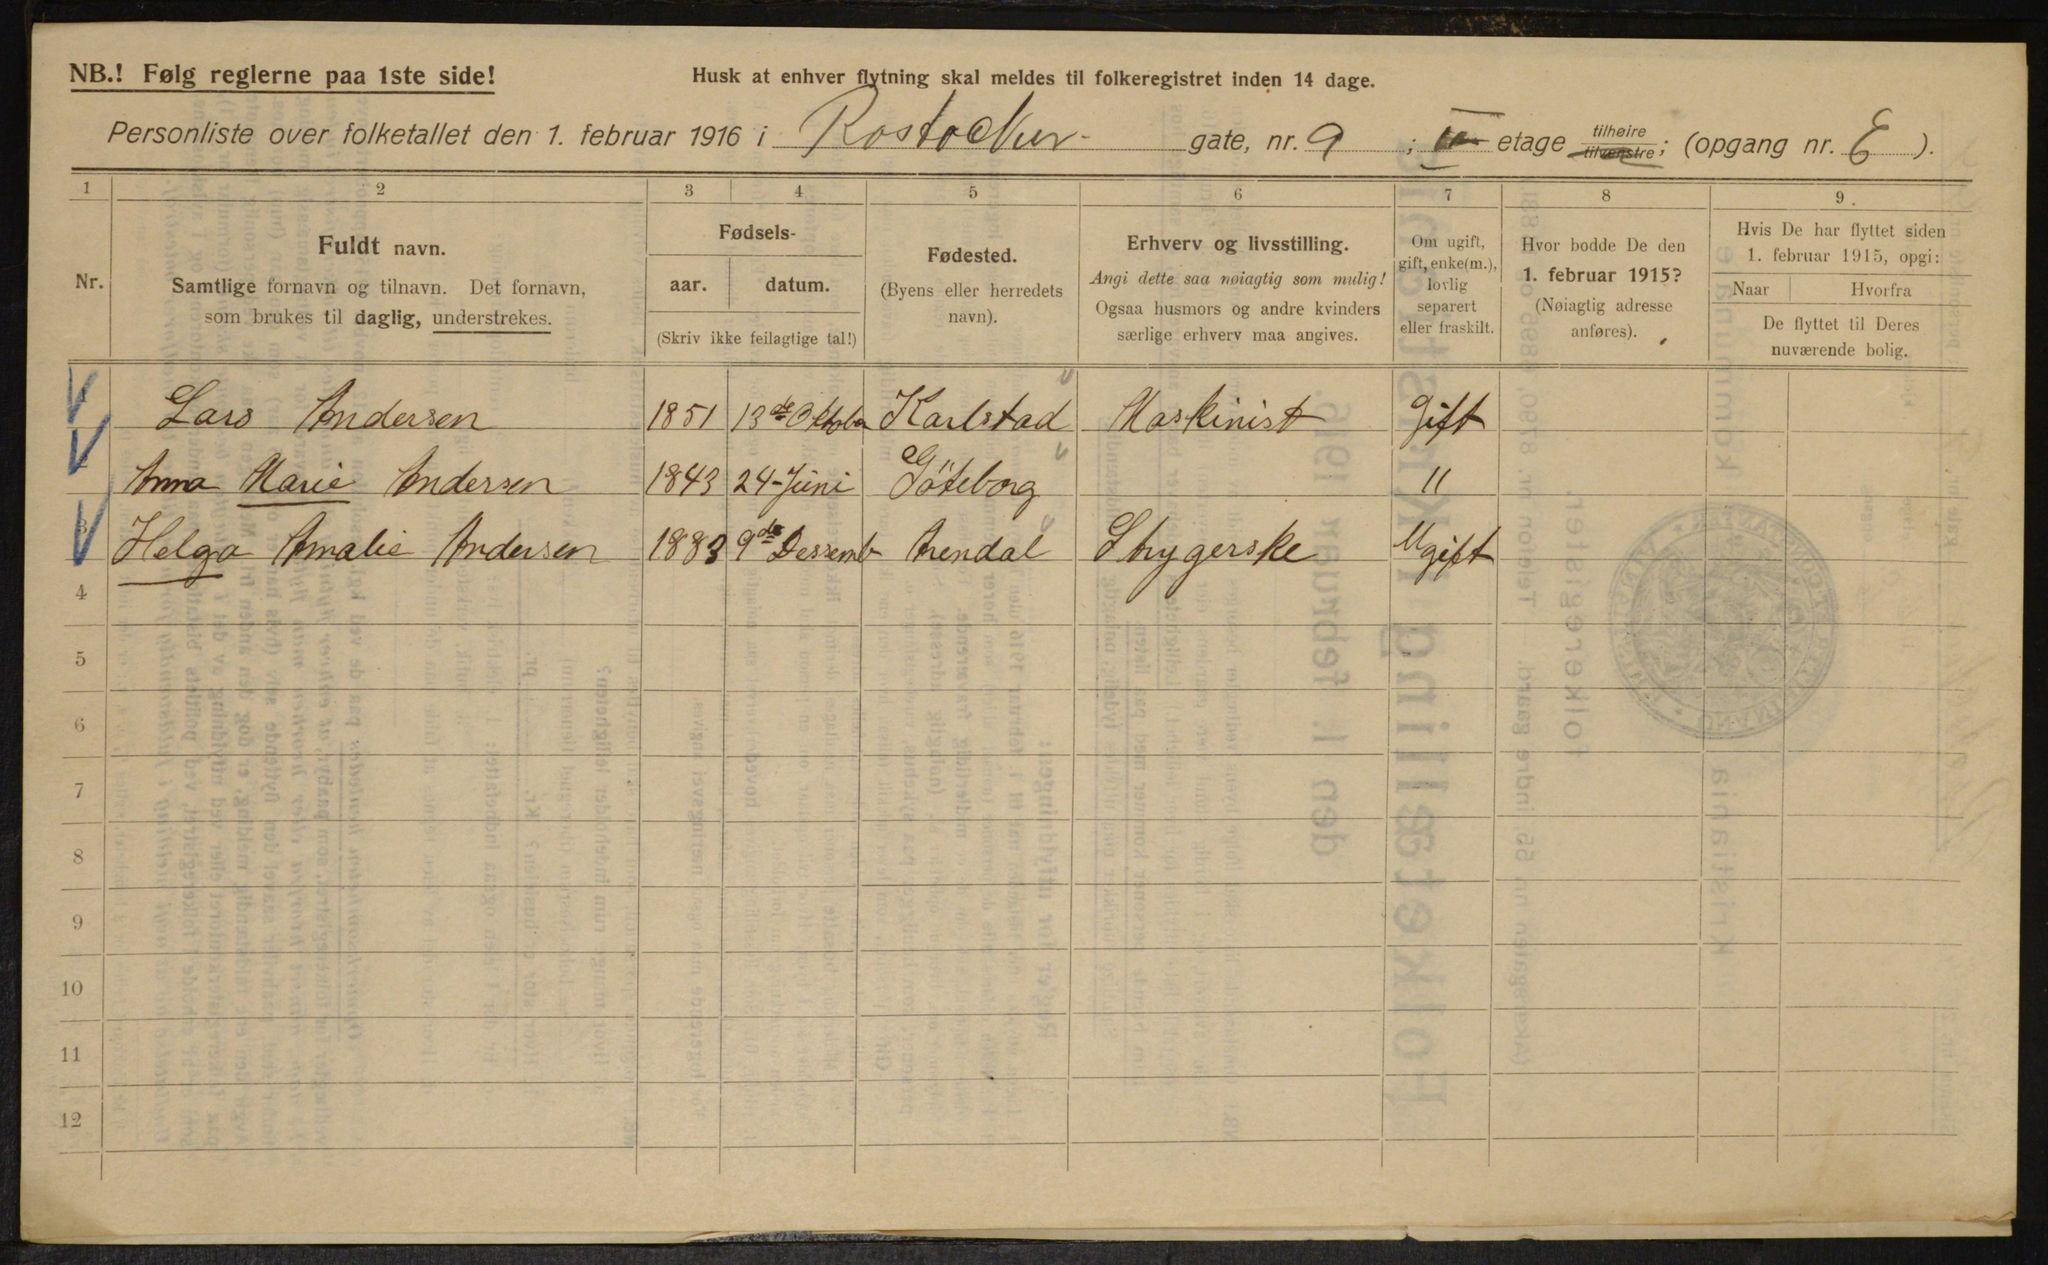 NB.! Følg reglerne paa 1ste side!
Husk at enhver flytning skal meldes til folkeregistret inden 14 dage.
Personliste over folketallet den 1. februar 1916 i Rostocker- gate, nr. 9 ; II etage tilhøire tilvenstre; (opgang nr. E ).
1 2 3 4 5 6 7 8 9.
Nr.
Fuldt navn.
Samtlige fornavn og tilnavn. Det fornavn,
som brukes til daglig, understrekes.
Fødsels-
aar. datum.
(Skriv ikke feilagtige tal!)
Fødested.
(Byens eller herredets
navn).
Erhverv og livsstilling.
Angi dette saa nøiagtig som mulig!
Ogsaa husmors og andre kvinders
særlige erhverv maa angives.
Om ugift,
gift, enke(m.),
lovlig
separert
eller fraskilt.
Hvor bodde De den
1. februar 1915?
(Nøiagtig adresse
anføres).
Hvis De har flyttet siden
1. februar 1915, opgi:
Naar Hvorfra
De flyttet til Deres
nuværende bolig.
1 Lars Andersen 1851 13de Oktober Karlstad Maskinist Gift
2 Anna Marie Andersen 1843 24-Juni Göteborg "
3 Helga Amalie Andersen 1883 9de Dessemb Arendal Strygerske Ugift
4
5
6
7
8
9
10
11
12